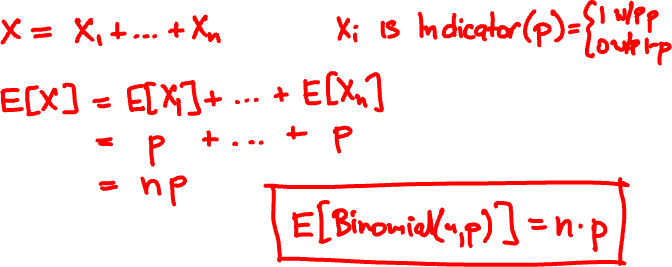 X = X₁ + ... + Xₙ    Xᵢ is Indicator(p) = {1 w/p p
0 w/p 1-p
E[X] = E[X₁] + ... + E[Xₙ]
= p + ... + p
= np
E[Binomial(n,p)] = n·p